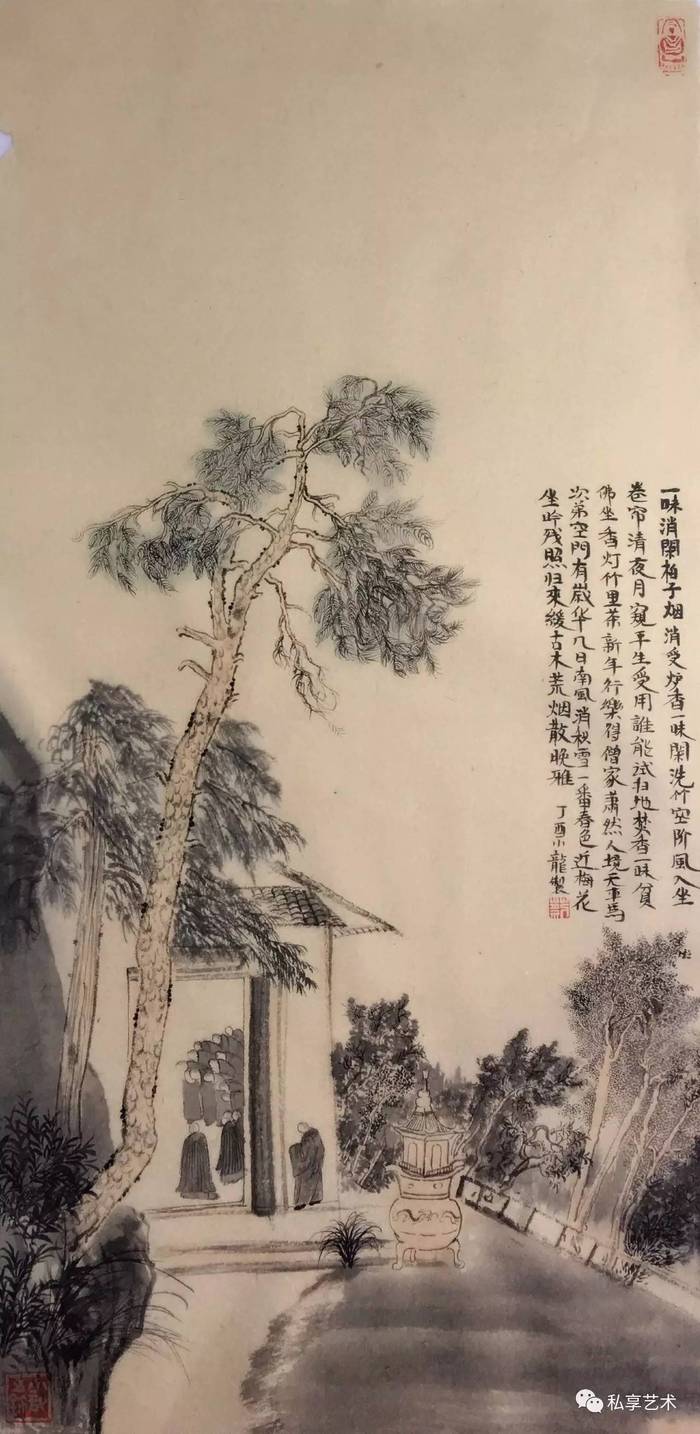 一味消閑柏子烟消受炉香一味閑洗竹空阶風入坐
卷帘清夜月窺平生受用誰能試扫地焚香一味貧
佛坐香灯竹里茶新年行樂得僧家蕭然人境无車馬
次弟空門有歲华几日南風消秋雪一番春色近梅花
坐吟残照归來緩古木荒烟散晚雅
丁酉小龍製
私享艺术